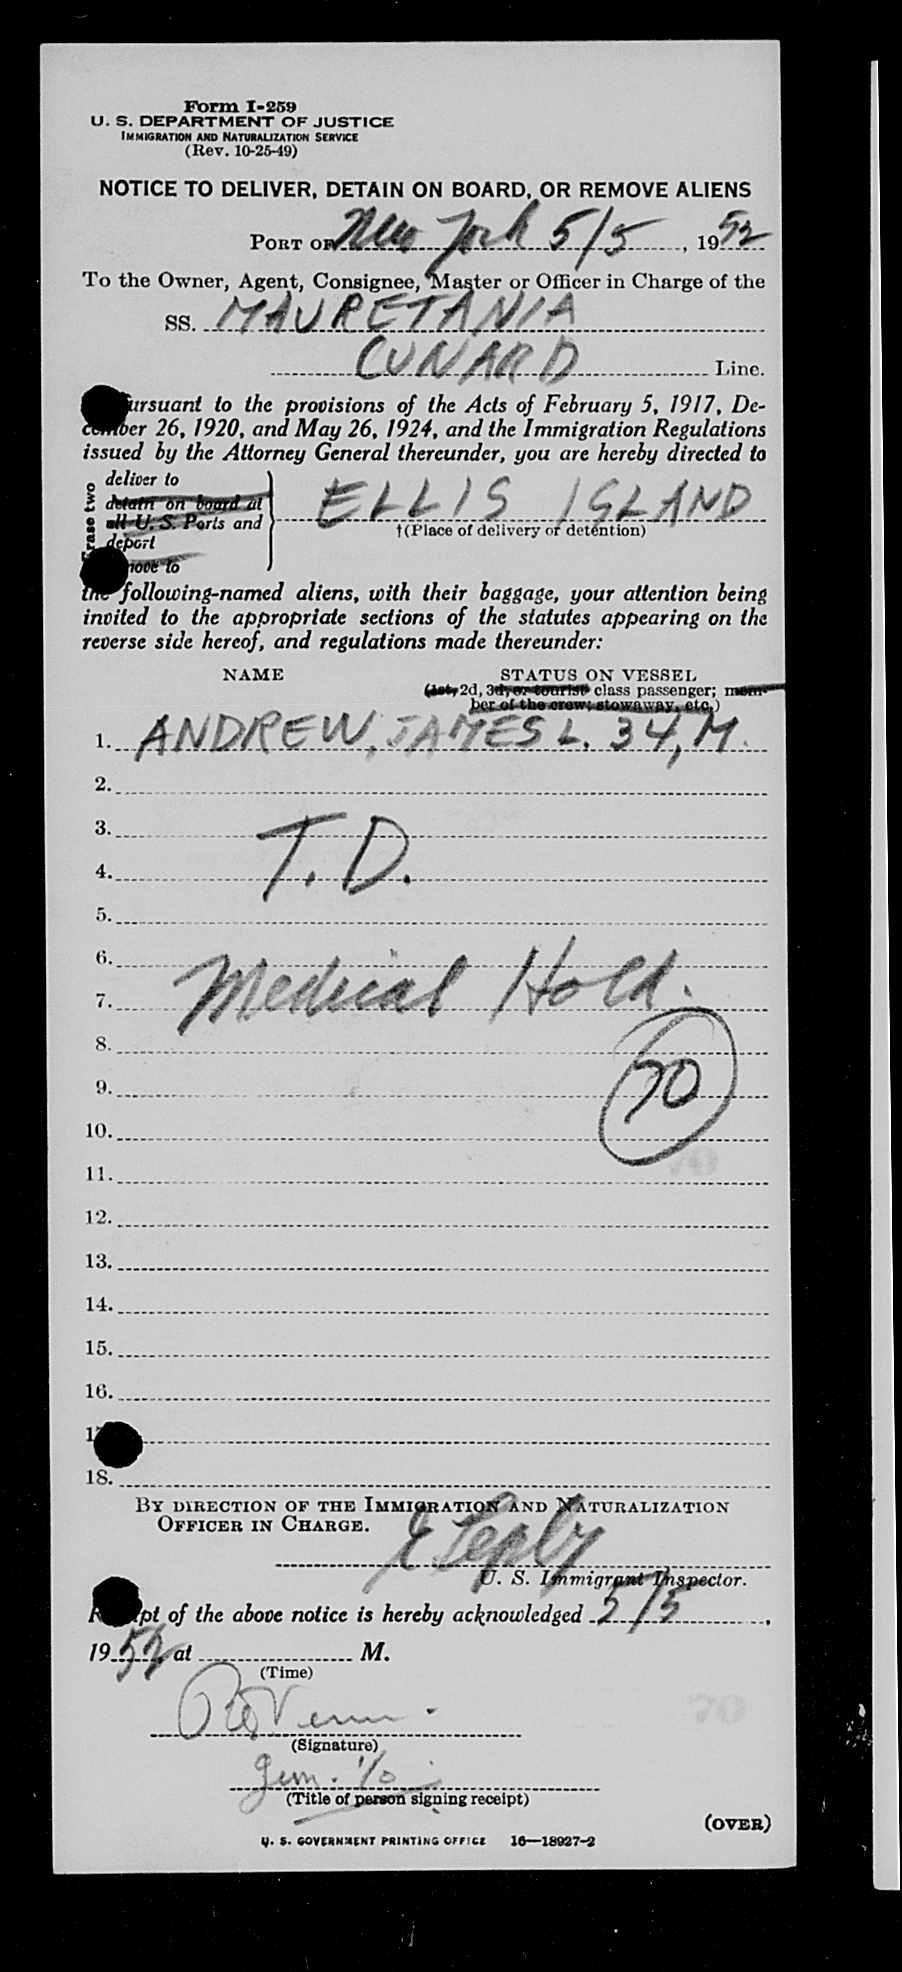 Form I-259
U. S. DEPARTMENT OF JUSTICE
IMMIGRATION AND NATURALIZATION SERVICE
(Rev. 10-25-49)
NOTICE TO DELIVER, DETAIN ON BOARD, OR REMOVE ALIENS
PORT OF New York 5/5, 1952
To the Owner, Agent, Consignee, Master or Officer in Charge of the
SS. MAURETANIA
CUNARD Line.
Pursuant to the provisions of the Acts of February 5, 1917, De-
cember 26, 1920, and May 26, 1924, and the Immigration Regulations
issued by the Attorney General thereunder, you are hereby directed to
Erase two
deliver to
detain on board at
all U. S. Ports and
deport
remove to
ELLIS ISLAND
†(Place of delivery or detention)
the following-named aliens, with their baggage, your attention being
invited to the appropriate sections of the statutes appearing on the
reverse side hereof, and regulations made thereunder:
NAME STATUS ON VESSEL
(1st, 2d, 3d, or tourist class passenger; mem-
ber of the crew; stowaway, etc.)
1. ANDREW, JAMES L. 34, M.
2.
3.
T. D.
4.
5.
6.
Medical Hold.
7.
8.
70
9.
10.
70
11.
12.
13.
14.
15.
16.
17.
18.
BY DIRECTION OF THE IMMIGRATION AND NATURALIZATION
OFFICER IN CHARGE.
U. S. Immigrant Inspector.
Receipt of the above notice is hereby acknowledged 5/5,
1952, at M.
(Time)
(Signature)
70
(Title of person signing receipt)
(OVER)
U. S. GOVERNMENT PRINTING OFFICE 16—18927-2